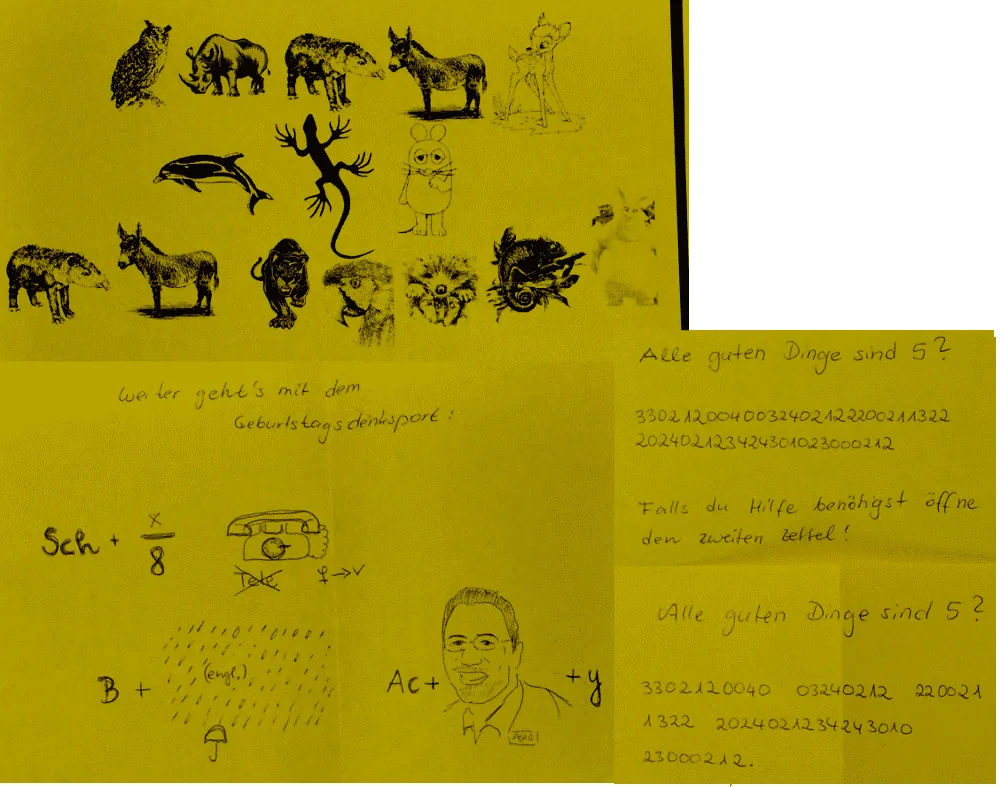 Weiter geht's mit dem
Geburtstagsdenksport!
Sch + x
8
Tele f→v
B + (engl.)
Ac+ + y
Alle guten Dinge sind 5?
3302120040032402122200211322
202402123424301023000212
Falls du Hilfe benötigst öffne
den zweiten Zettel!
Alle guten Dinge sind 5?
3302120040 03240212 220021
1322 2024021234243010
23000212.